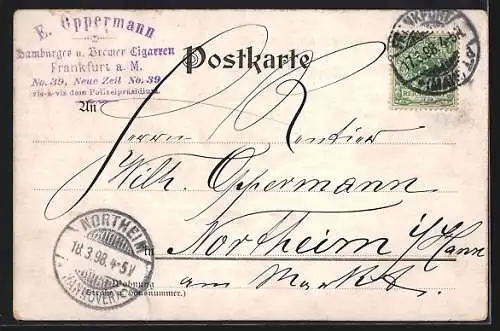 E. Oppermann
Hamburger u. Bremer Cigarren
Frankfurt a. M.
No. 39, Neue Zeil No. 39,
vis-a-vis dem Polizeipräsidium.
Postkarte
An
Herrn Rentier
Wilh. Oppermann
in Northeim i/Hann
am Markt.
Wohnung
(Straße u. Hausnummer.)
17.3.98
NORTHEIM
18.3.98. 4-5V
(HANNOVER)